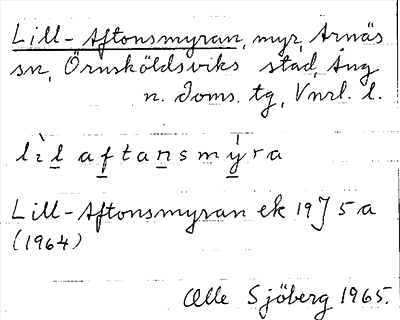 Lill-Aftonsmyran, myr, Arnäs
sn, Örnsköldsviks stad, Ång
n. doms. tg, Vnrl. l.
lìl aftansmy̍ra
Lill-Aftonsmyran ek 19J 5a
(1964)
Olle Sjöberg 1965.